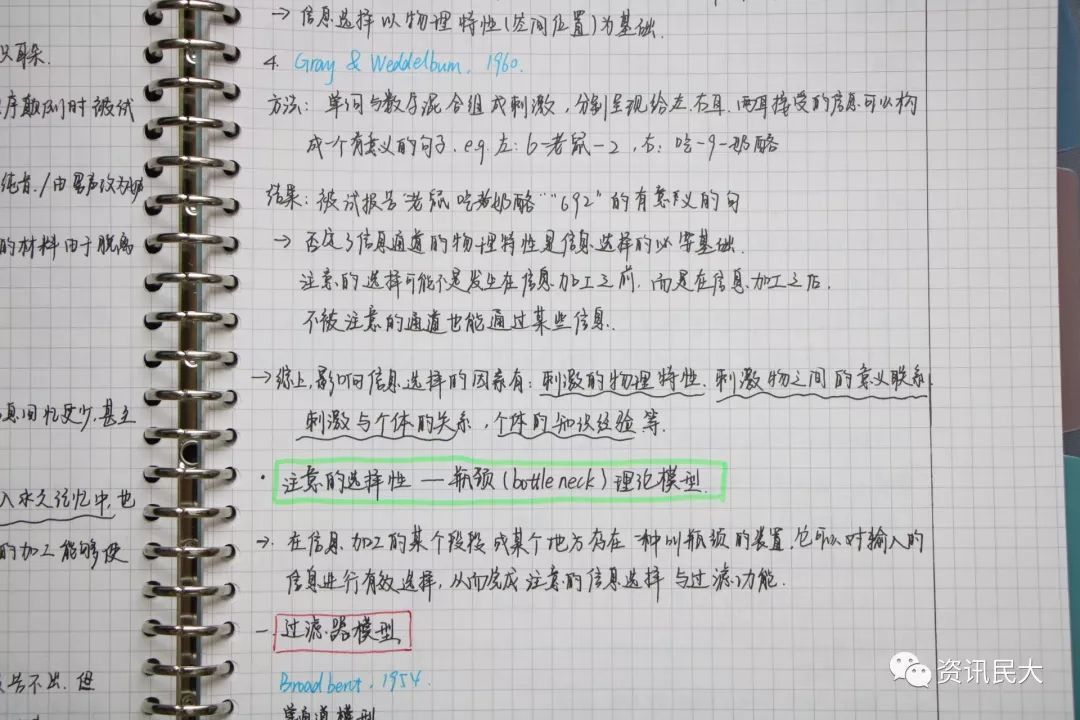 只耳朵.
序颠倒时被试
纯音./由男声改为
的材料由于脱离
息回忆更少.甚至
入永久记忆中,也
的加工能够使
告不出.但
→ 信息选择以物理特性(空间位置)为基础.
4. Gray & Weddelbum. 1960.
方法: 单词与数字混合组成刺激, 分别呈现给左.右耳. 两耳接受的信息可以构
成一个有意义的句子. e.g. 左: 6-老鼠-2, 右: 吃-9-奶酪
结果: 被试报告"老鼠吃着奶酪""692"的有意义的句
→ 否定了信息通道的物理特性是信息选择的必要基础.
注意的选择可能不是发生在信息加工之前, 而是在信息加工之后.
不被注意的通道也能通过某些信息.
→综上,影响信息选择的因素有: 刺激的物理特性. 刺激物之间的意义联系
刺激与个体的关系, 个体的知识经验等.
· 注意的选择性 — 瓶颈 (bottle neck) 理论模型.
→. 在信息加工的某个段投或某个地方存在一种叫瓶颈的装置.它可以对输入的
信息进行有效选择, 从而完成注意的信息选择与过滤功能.
一 过滤器模型
Broadbent. 1954.
单通道模型
资讯民大